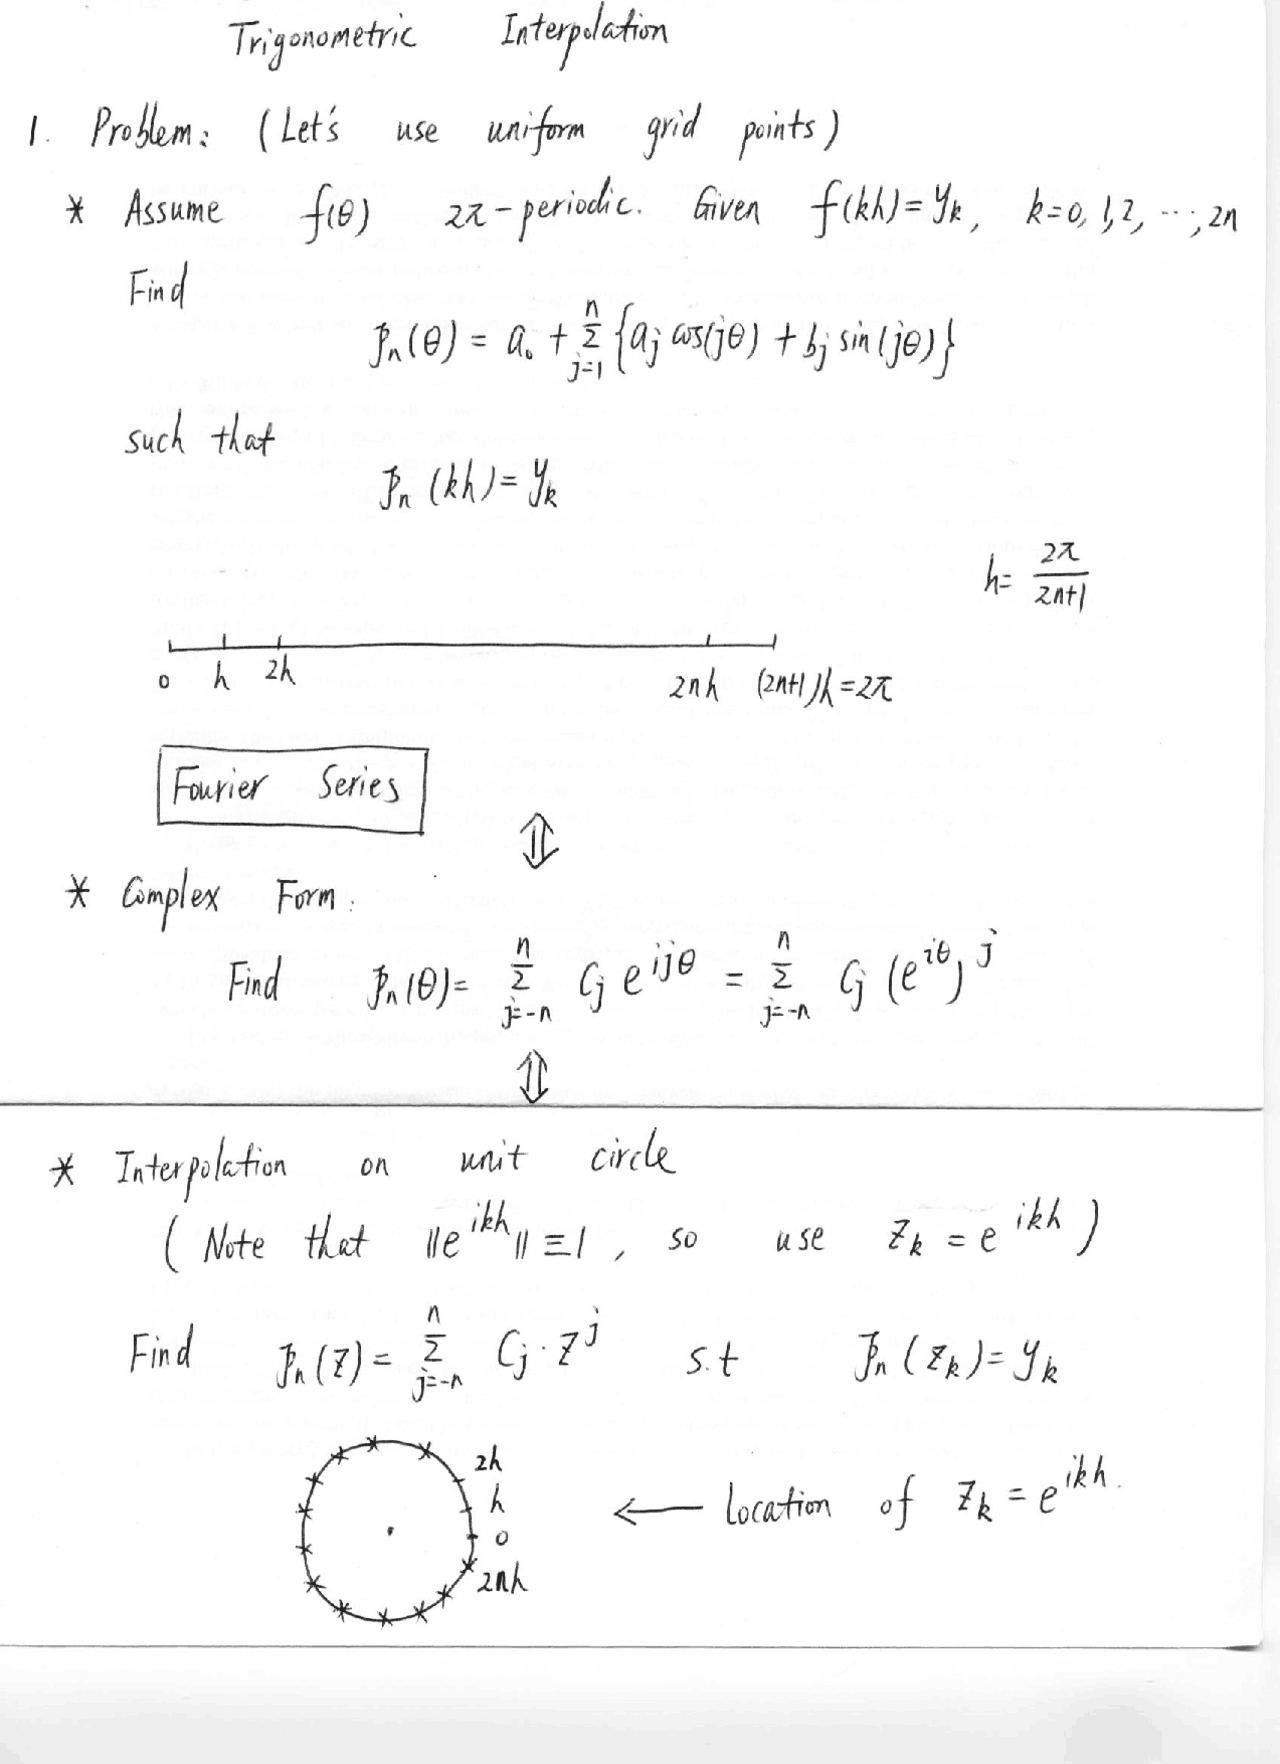 Trigonometric Interpolation
1. Problem: (Let's use uniform grid points)
* Assume f(θ) 2π-periodic. Given f(kh)=y_k, k=0,1,2,⋯,2n
Find
p_n(θ) = a_0 + Σ_{j=1}^{n} {a_j cos(jθ) + b_j sin(jθ)}
such that
p_n(kh)=y_k
h= 2π/(2n+1)
0 h 2h 2nh (2n+1)h=2π
Fourier Series
⇕
* Complex Form:
Find p_n(θ)= Σ_{j=-n}^{n} C_j e^{ijθ} = Σ_{j=-n}^{n} C_j (e^{iθ})^j
⇕
* Interpolation on unit circle
(Note that ||e^{ikh}|| ≡1, so use z_k = e^{ikh})
Find p_n(z)= Σ_{j=-n}^{n} C_j · z^j s.t p_n(z_k)= y_k
2h
h
0
2nh
← location of z_k = e^{ikh}.